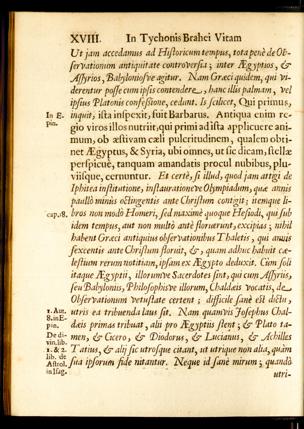 XVIII. In Tychonis Brahei Vitam
Ut jam accedamus ad Historicum tempus, tota penè de Ob-
servationum antiquitate controversia; inter Ægyptios, &
Assyrios, Babyloniosve agitur. Nam Græci quidem, qui vi-
derentur posse cum ipsis contendere, hanc illis palmam, vel
ipsius Platonis confessione, cedunt. Is scilicet, Qui primus,
In E-
pin.
inquit, ista inspexit, fuit Barbarus. Antiqua enim re-
gio viros illos nutriit, qui primi ad ista applicuere ani-
mum, ob æstivam cæli pulcritudinem, qualem obti-
net Ægyptus, & Syria, ubi omnes, ut sic dicam, stellæ
perspicuè, tanquam amandatis procul nubibus, plu-
viisque, cernuntur. Et certè, si illud, quod jam attigi de
Iphitea institutione, instaurationeve Olympiadum, quæ annis
paullò minùs octingentis ante Christum contigit; itemque li-
bros non modò Homeri, sed maximè quoque Hesiodi, qui sub
cap. 18.
idem tempus, aut non multò antè floruerunt, excipias; nihil
habent Græci antiquius observationibus Thaletis, qui annis
sexcentis ante Christum floruit, &, quam adhuc habuit cæ-
lestium rerum notitiam, ipsam ex Ægypto deduxit. Cum soli
itaque Ægyptii, illorumve Sacerdotes sint, qui cum Assyriis,
seu Babyloniis, Philosophisve illorum, Chaldæis vocatis, de
Observationum vetustate certent; difficile sanè est dictu,
utris ea tribuenda laus sit. Nam quamvis Josephus Chal-
1. Ant.
8. in E-
pin.
dæis primas tribuat, alii pro Ægyptiis stent; & Plato ta-
men, & Cicero, & Diodorus, & Lucianus, & Achilles
De di-
vin. lib.
1. & 2.
lib. de
Astrol.
in Isag.
Tatius, & alij sic utrosque citant, ut utrique non aliâ, quàm
sua ipsorum fide nitantur. Neque id sanè mirum; quandò
utri-